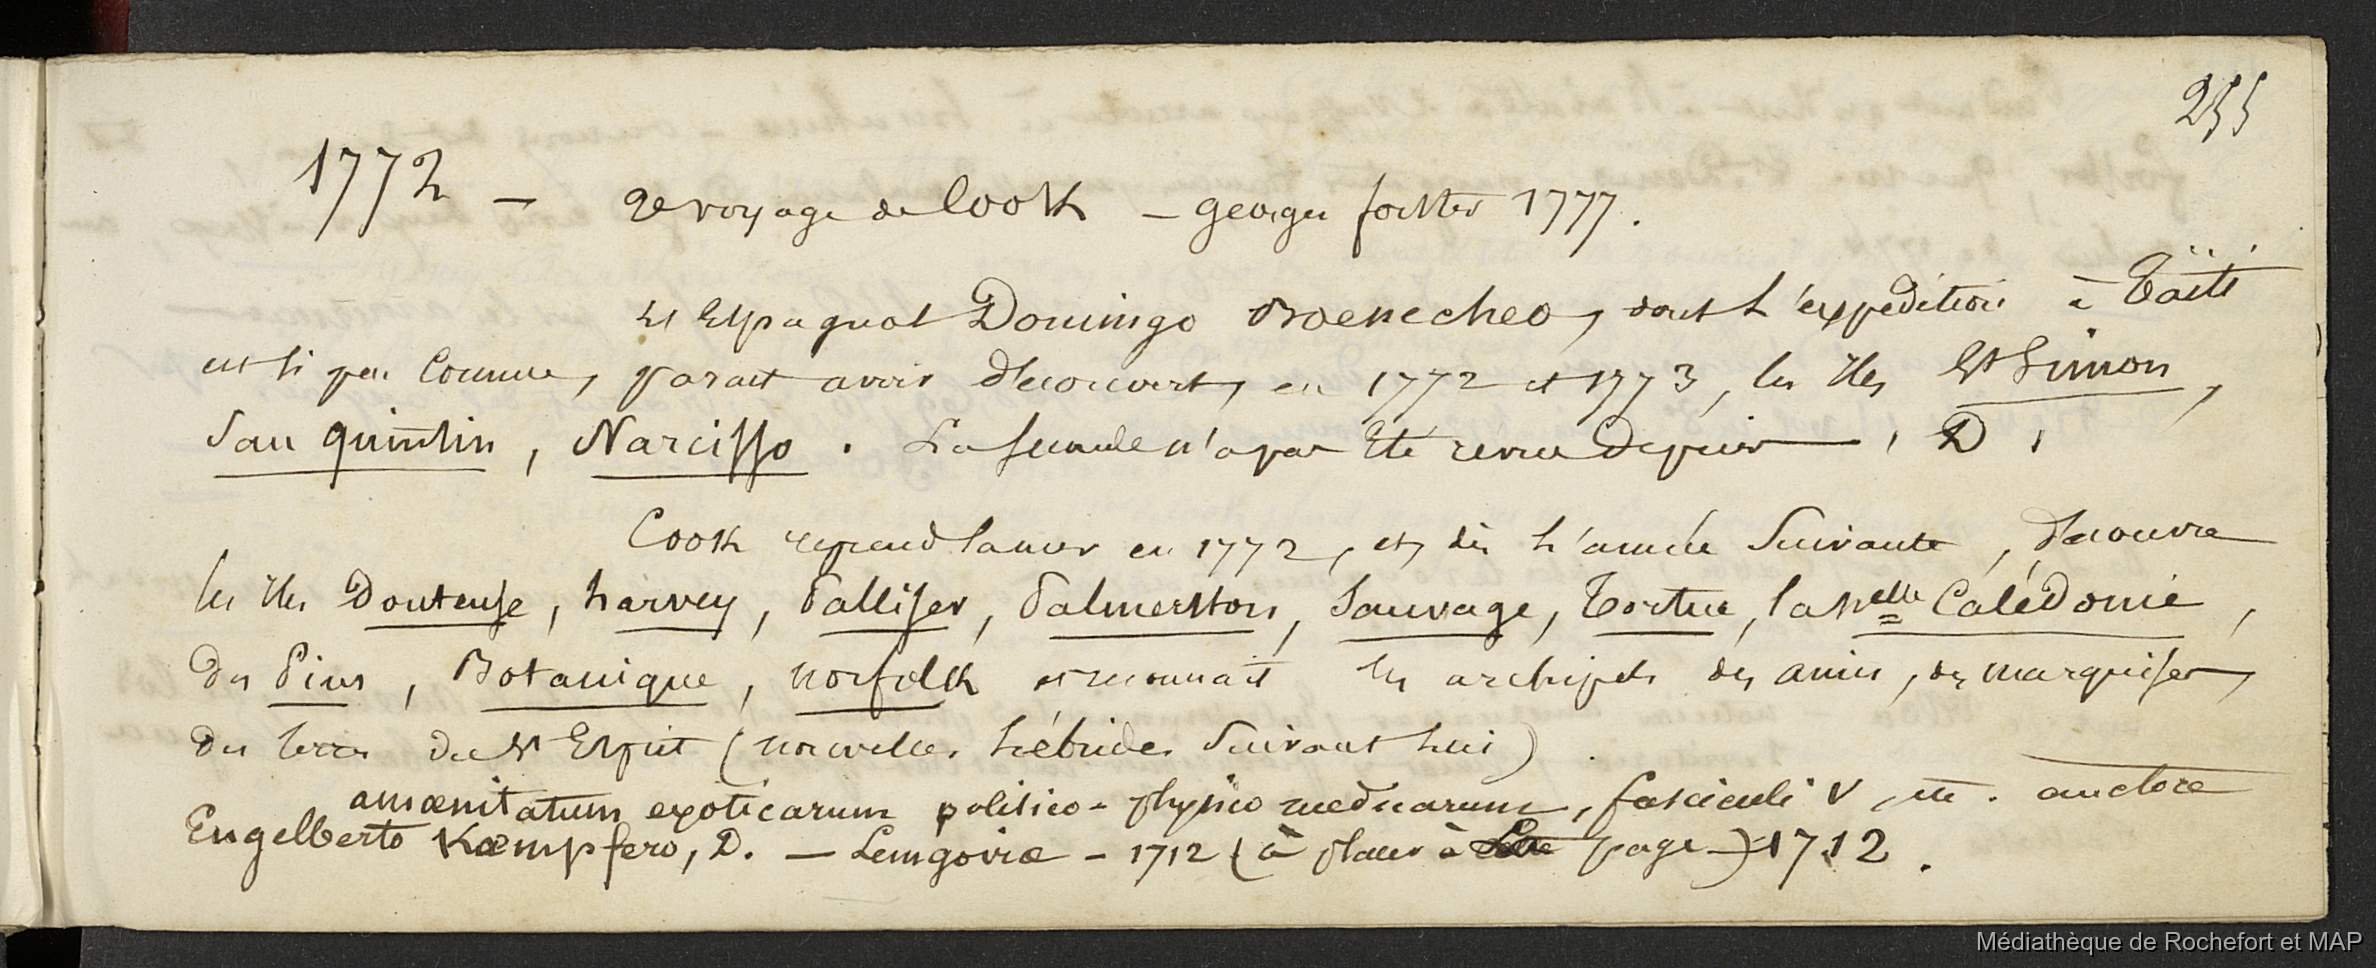 255
1772 — 2e voyage de Cook — georges forster 1777.
L'Espagnol Domingo Boenecheo, dont l'expédition à Taïti
est si peu connue, parait avoir découvert, en 1772 et 1773, les îles St Simon,
San quintin, Narcisso. La seconde n'a pas été revue depuis —, D,
Cook reprend la mer en 1772, et, dès l'année suivante, découvre
les îles Douteuse, harvey, Palliser, Palmerston, Sauvage, Tortue, la nelle Calédonie,
des Pins, Botanique, norfolk et reconnait les archipels des amis, des marquises,
des terres du St Esprit (nouvelles hébrides suivant lui).
amœnitatum exoticarum politico-physico medicarum, fasciculi V, etc. auctore
Engelberto Kæmpfero, D. — Lemgoviæ — 1712 (à placer à page —) 1712.
Médiathèque de Rochefort et MAP